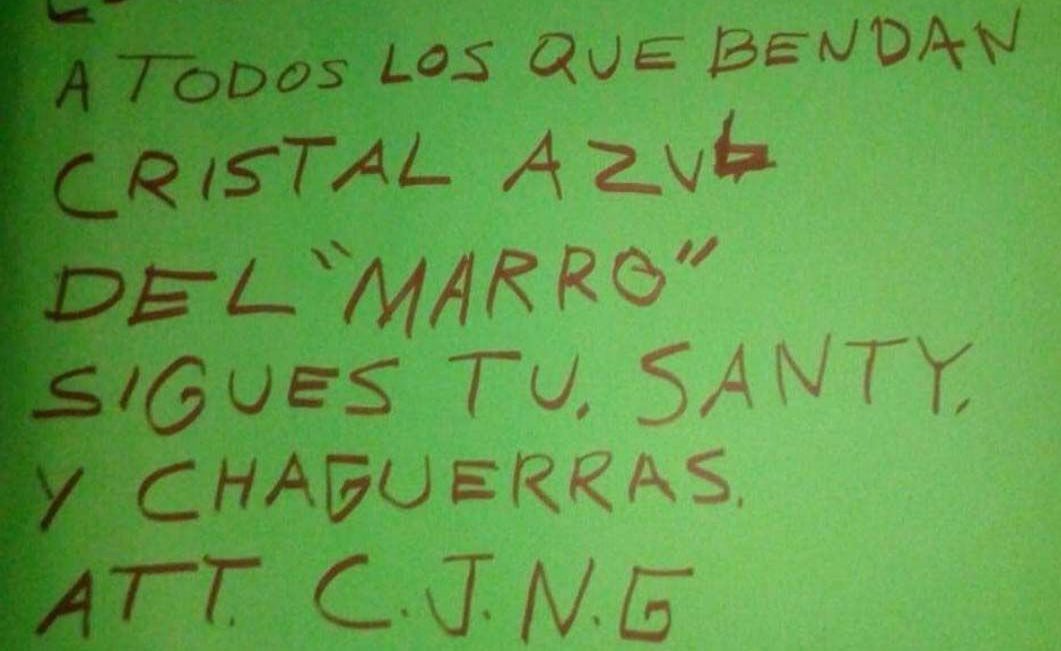 A TODOS LOS QUE BENDAN
CRISTAL AZUL
DEL "MARRO"
SIGUES TU. SANTY,
Y CHAGUERRAS.
ATT. C.J.N.G